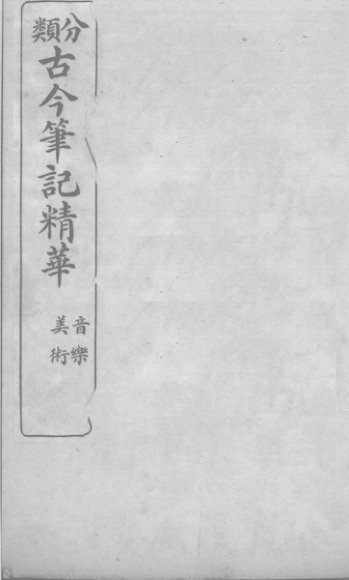 分類
古今筆記精華
音樂
美術